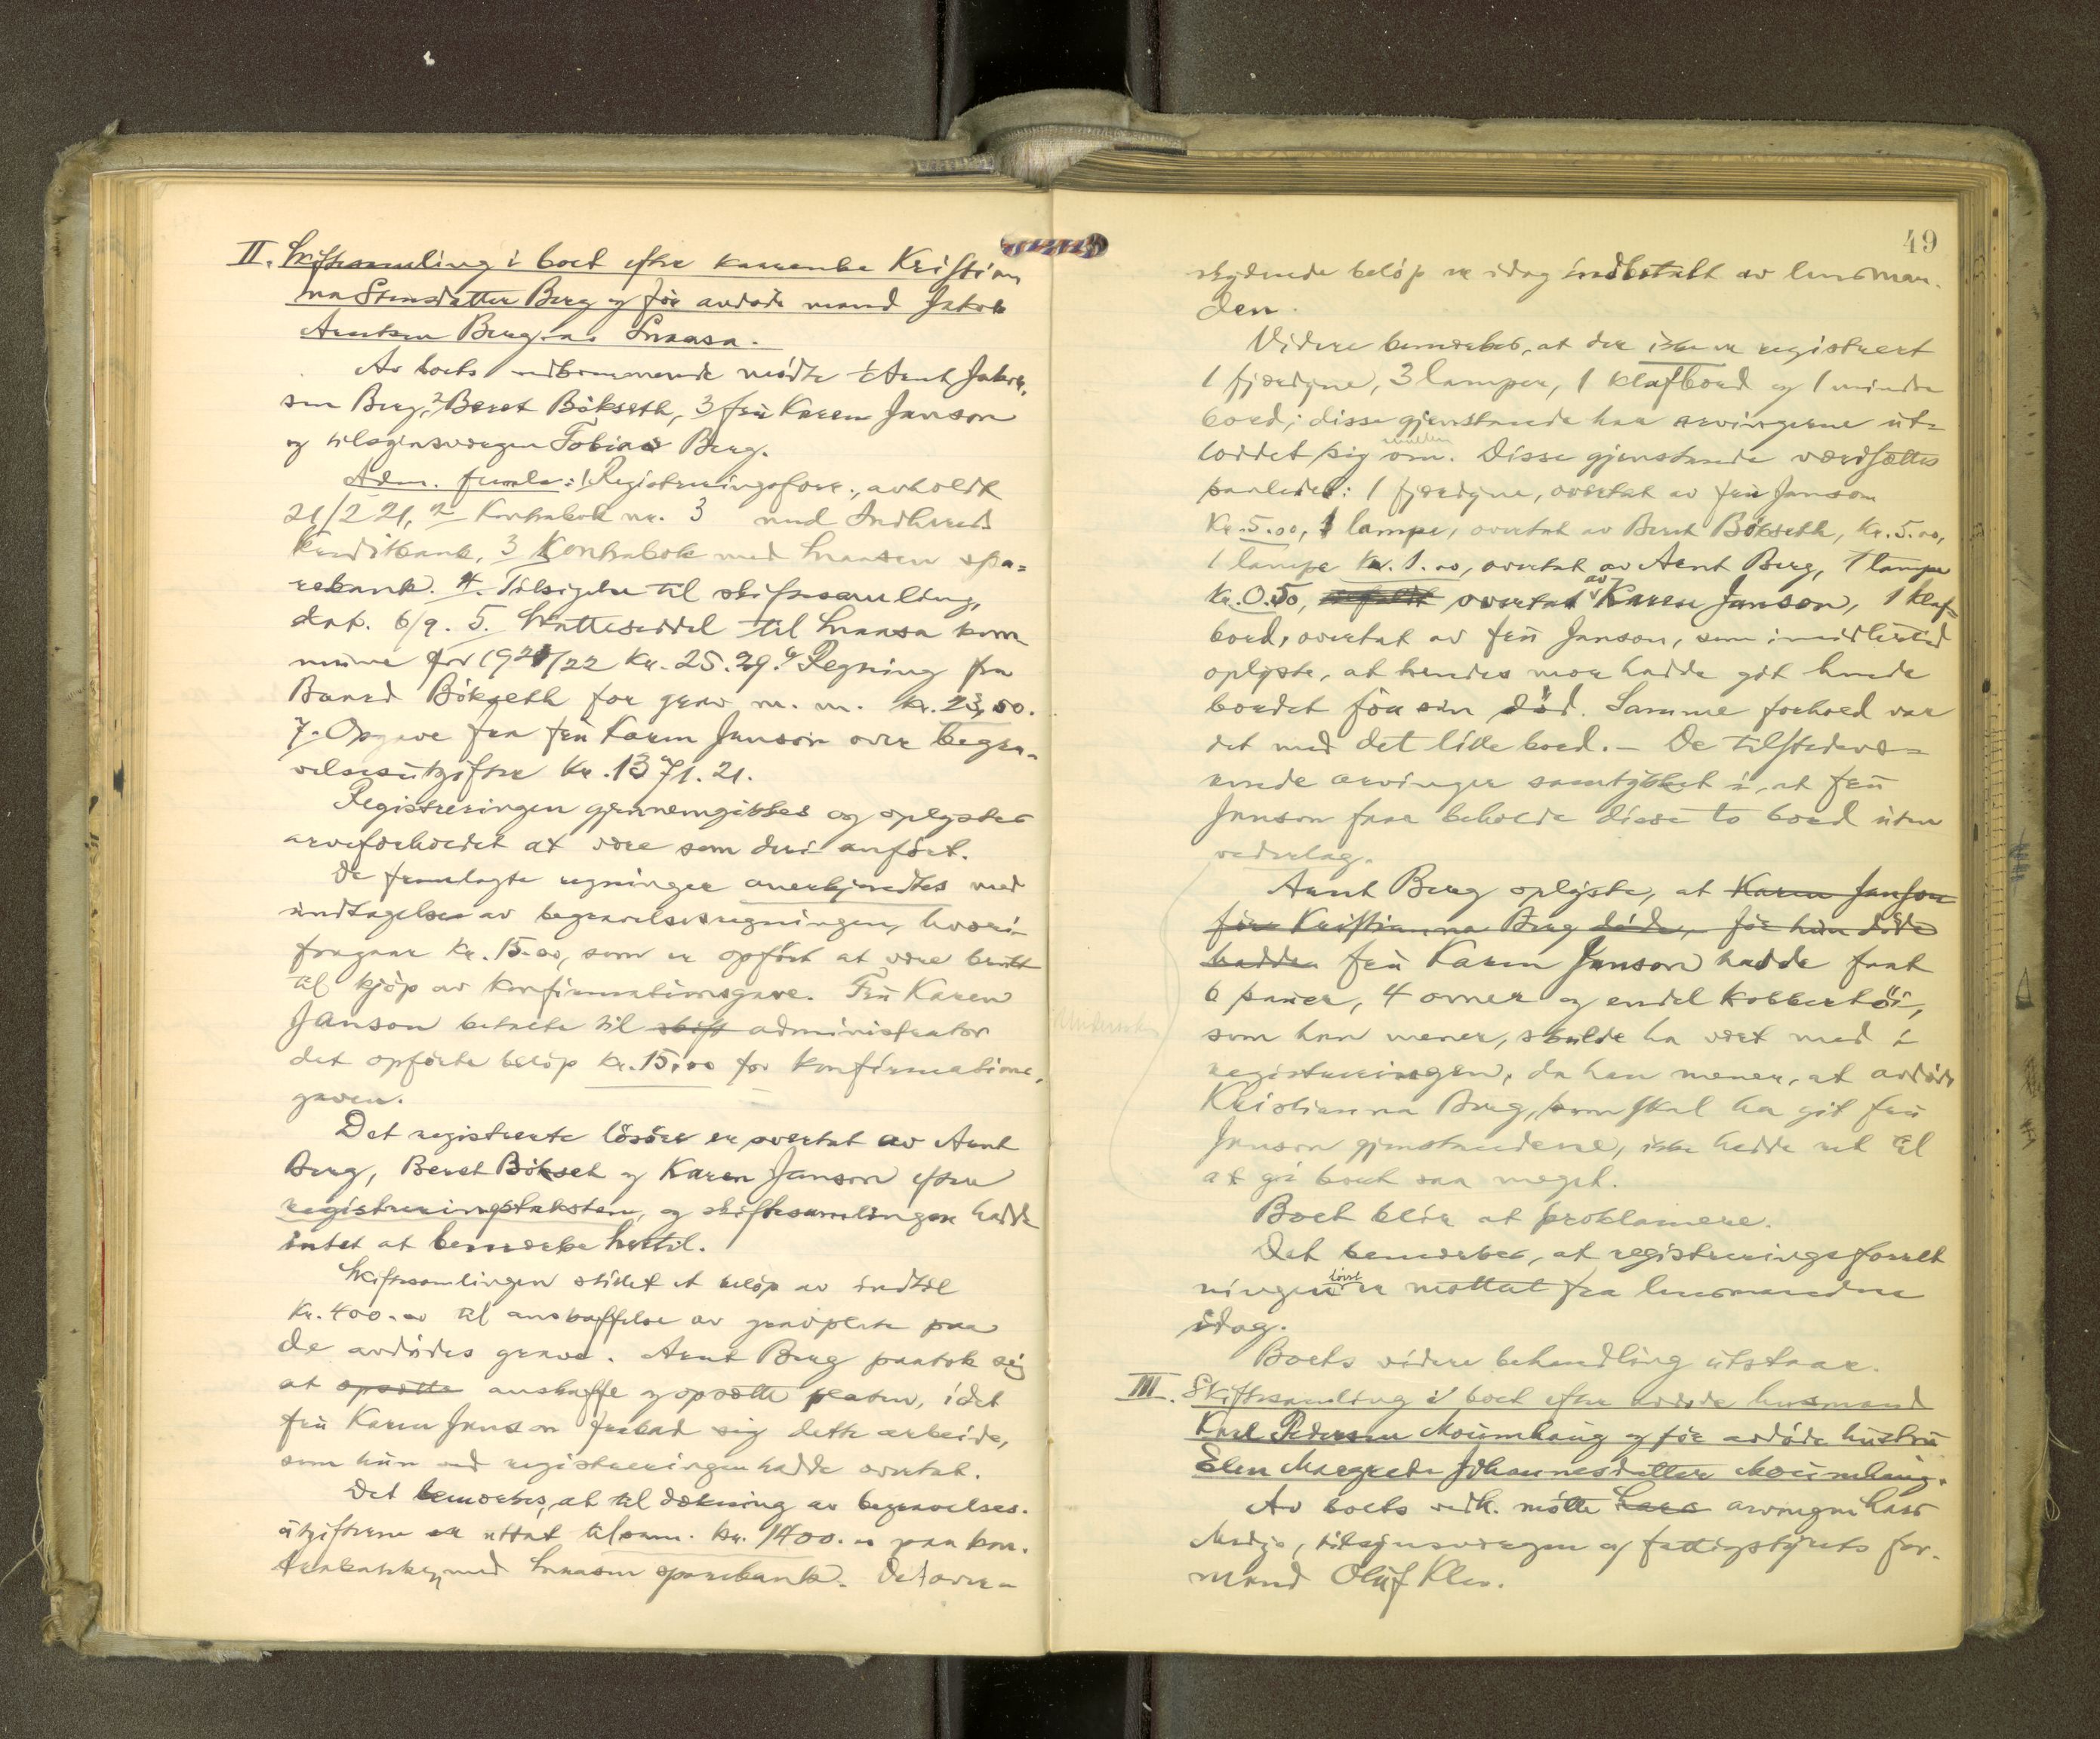 II. Skiftesamling i boet efter kaarenke Kristian
na Stensdatter Berg og før avdøde mand Jakob
Arntsen Berg av Snaasa.
Av boets vedkommende mødte 1 Arnt Jakob-
sen Berg, 2 Beret Bökseth, 3 frü Karen Janson
og tilsynsvergen Tobias Berg.
Adm. freml.: 1 Registreringsforr., avholdt
21/2 21, 2 Kontrabok nr. 3 med Indherreds
Kreditbank, 3 Kontrabok med Snaasen spa=
rebank. 4. Tilsigelse til skiftesamling,
dat. 6/9. 5. Skatteseddel til Snaasa kom
mune for 1921/22 Kr. 25.29. 6 Regning fra
Baard Bökseth for grav m. m. kr. 23,50.
7. Opgave fra frü Karen Janson over begra-
velsesütgifter Kr. 1371.21.
Registreringen gjennemgikkes og oplystes
arveforholdet at være som deri anført.
De fremlagte regninger anerkjendtes med
ündtagelse av begravelsesregningen, hvori
fragaar kr. 15.00, som er opført at være brükt
til kjöp av konfirmationsgave. Frü Karen
Janson betalte til skift administrator
det opførte beløp kr. 15,00 for konfirmations-
gaven.
Det registrerte lösöre er overtat av Arnt
Berg, Beret Bökset og Karen Janson efter
registreringstaksten, og skiftesamlingen hadde
intet at bemerke hertil.
Skiftesamlingen stillet et beløp av indtil
Kr. 400.00 til anskaffelse av gravplate paa
de avdødes grave. Arnt Berg paatok sig
at opsætte anskaffe og opsætte platen, idet
frü Karen Janson frabad sig dette arbeide,
som hün ved registreringen hadde overtat.
Det bemerkes, at til dækning av begravelses-
ütgifterne er uttat tilsam. kr. 1400.00 paa kon-
trabokken med Snaasen sparebank. Det over-
49
skydende beløp er idag indbetalt av lensman-
den.
Videre bemerkes, at der ikke er registrert
1 fjærdyne, 3 lamper, 1 klafbord og 1 mindre
bord; disse gjenstande har arvingerne üt=
loddet sig imellem om. Disse gjenstande værdsættes
saaledes: 1 fjærdyne, overtat av frü Janson
Kr. 5.00, 1 lampe, overtat av Beret Bökseth, Kr. 5.00,
1 lampe Kr. 1.00, overtat av Arnt Berg, 1 lampe
Kr. 0.50, overtat av Karen Janson, 1 klaf=
bord, overtat av frü Janson, som imidlertid
oplyste, at hendes mor hadde git hende
bordet för sin död. Samme forhold var
det med det lille bord. – De tilstedevæ=
rende arvinger samtykket i, at frü
Janson faar beholde disse to bord üten
vederlag.
Arnt Berg oplyste, at Karen Janson
før Kristianna Berg døde, før hün døde
hadde frü Karen Janson hadde faat
6 sauer, 4 ovner og endel kobbertöi,
som han mener, skulde ha vært med i
registreringen, da han mener, at avdøde
Kristianna Berg, som skal ha git frü
Janson gjenstandene, ikke hadde ret til
at gi bort saa meget.
Boet blir at proklamere.
Det bemerkes, at registreringsforret
ningen først er mottat fra lensmanden
idag.
Boets videre behandling ütstaar.
III. Skiftesamling i boet efter avdøde husmand
Karl Pedersen Moümhaüg og før avdøde hüstrü
Elen Margrete Johannesdatter Moümhaüg.
Av boets vedk. møtte Lars arvingen Lars
Medjo, tilsynsvergen og fattigstyrets for-
mand Olüf Klev.